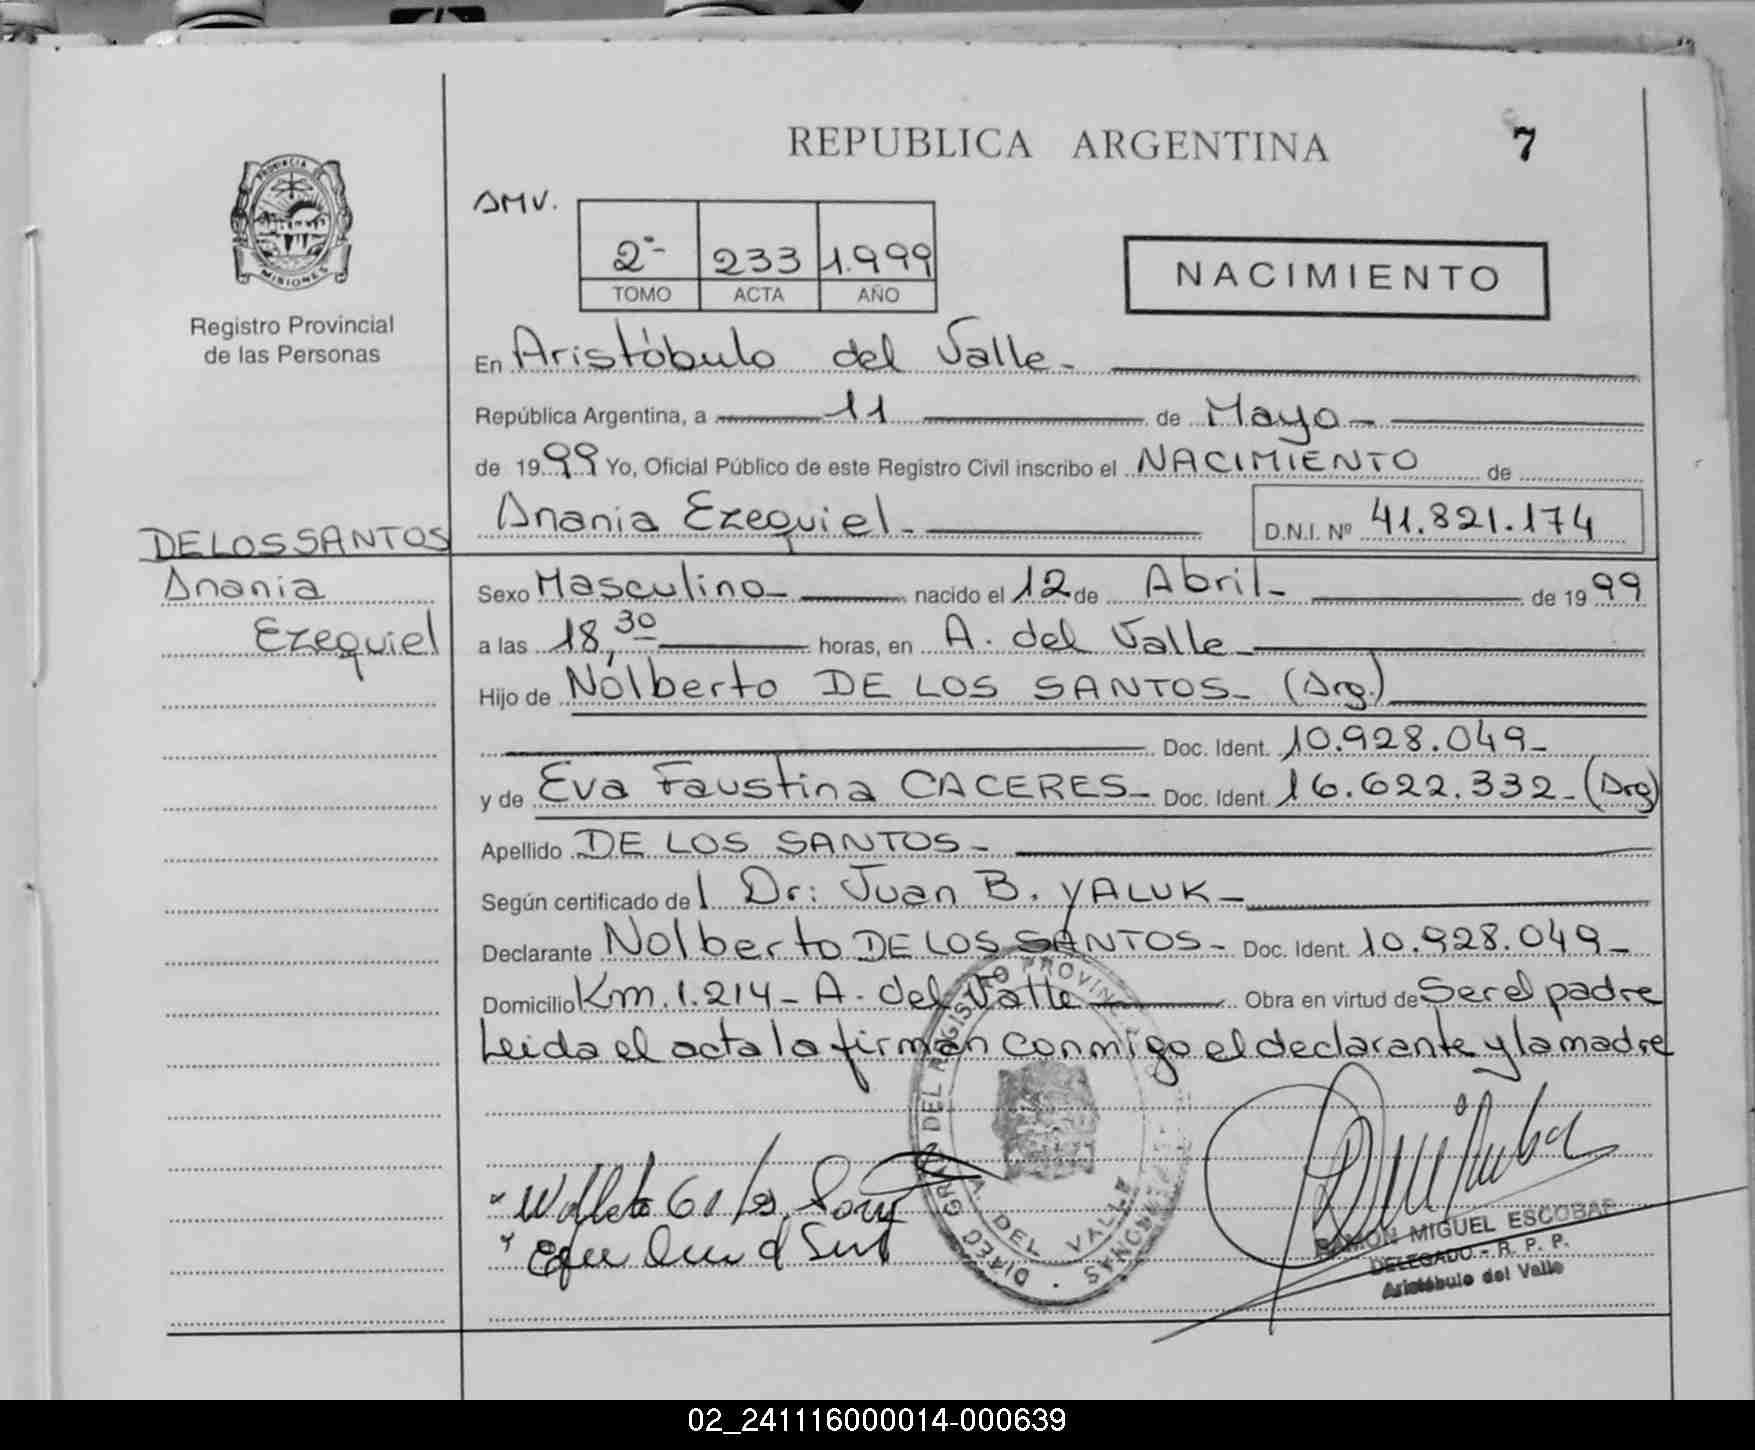 REPUBLICA ARGENTINA
7
PROVINCIA DE
MISIONES
Registro Provincial
de las Personas
AMV.
2º- 233 1.999
TOMO ACTA AÑO
NACIMIENTO
En Aristóbulo del Valle-
República Argentina, a 11 de Mayo-
de 1999 Yo, Oficial Público de este Registro Civil inscribo el NACIMIENTO de
Anania Ezequiel- D.N.I. Nº 41.821.174
DE LOS SANTOS
Anania
Ezequiel
Sexo Masculino- nacido el 12 de Abril- de 1999
a las 18,30 horas, en A. del Valle-
Hijo de Nolberto DE LOS SANTOS- (Arg.)
Doc. Ident. 10.928.049-
y de Eva Faustina CACERES- Doc. Ident. 16.622.332-(Arg)
Apellido DE LOS SANTOS-
Según certificado del Dr: Juan B. YALUK-
Declarante Nolberto DE LOS SANTOS- Doc. Ident. 10.928.049-
Domicilio Km.1.214- A. del Valle Obra en virtud de Ser el padre
Leida el acta la firman conmigo el declarante y la madre
DEL REGISTRO PROVINCIAL
A. DEL VALLE
RAMON MIGUEL ESCOBAR
DELEGADO - R. P. P.
Aristóbulo del Valle
02_241116000014-000639